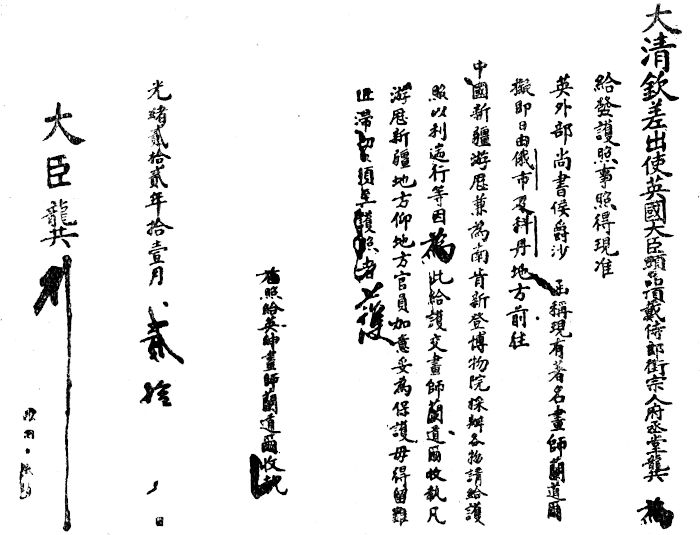 大清欽差出使英國大臣頭品頂戴侍郎銜宗人府丞堂龔 為
給發護照事照得現准
英外部尚書侯爵沙 函稱現有著名畫師蘭道爾
擬即日由俄市及科丹地方前往
中國新疆游歷兼為南肯新登博物院採辦各物請給護
照以利遄行等因為此給護交畫師蘭道爾收執凡
游歷新疆地方仰地方官員加意妥為保護毋得留難
阻滯切切須至護照者
護
照給英帥畫師蘭道爾收執
光緒貳拾貳年拾壹月 貳拾 日
大臣龔